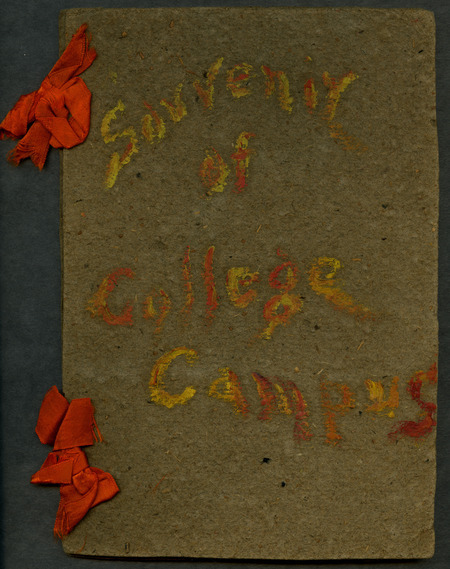 Souvenir
of
College
Campus